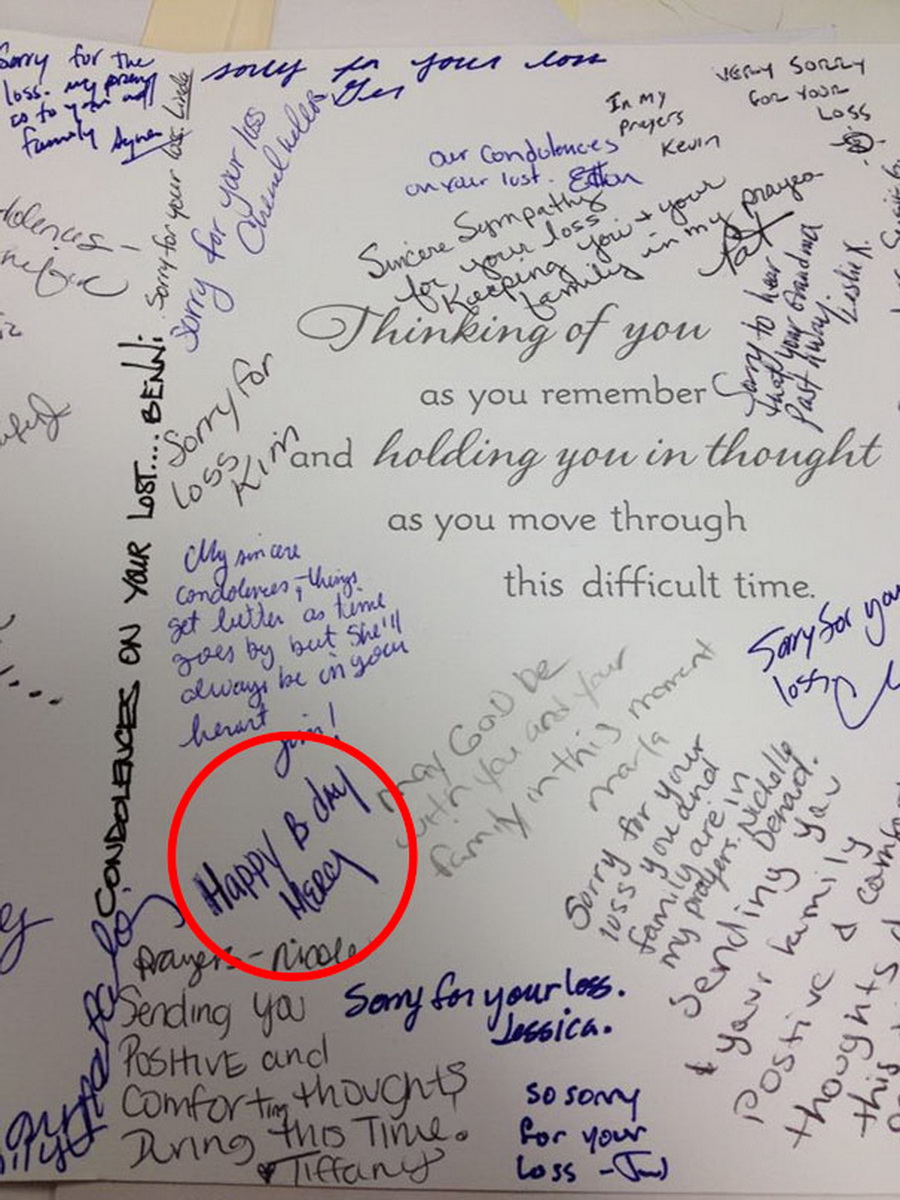 Sorry for the
loss. my
family
sorry for your loss
Sorry for your loss. Linda
Sorry for your loss
In my
prayers
Kevin
VERY SORRY
FOR YOUR
LOSS
our Condolences
on your lost.
Sincere Sympathy
for your loss
Keeping you + your
family in my prayers
Pat
Sorry to hear
that your Grandma
Past away
Leslie X.
Thinking of you
as you remember
and holding you in thought
as you move through
this difficult time.
CONDOLENCES ON YOUR LOST.... BENNI
Sorry for
loss
Kim
My sincere
condolences, things
get better as time
goes by but she'll
always be in your
heart
Jim!
Happy B day
Mercy
may God be
with you and your
family in this moment
Marla
Sorry for your
loss
Sorry for your
loss you and
family are in
my prayers. Nicholle
Denad.
Prayers - Nicole
Sending you
POSITIVE and
Comforting thoughts
During this Time.
Tiffany
Sorry for your loss.
Jessica.
so sorry
for your
loss
Sending you
& your family
Positive &
thoughts
this